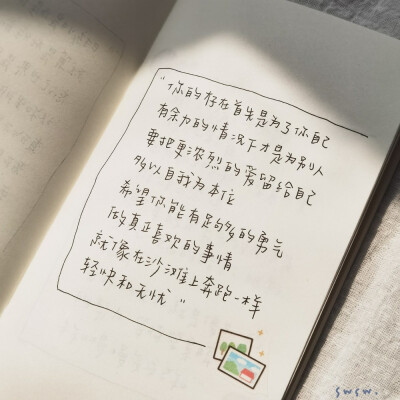 “你的存在首先是为了你自己
有余力的情况下才是为别人
要把更浓烈的爱留给自己
多以自我为本位
希望你能有足够多的勇气
做真正喜欢的事情
就像在沙滩上奔跑一样
轻快和无忧”
swsw.